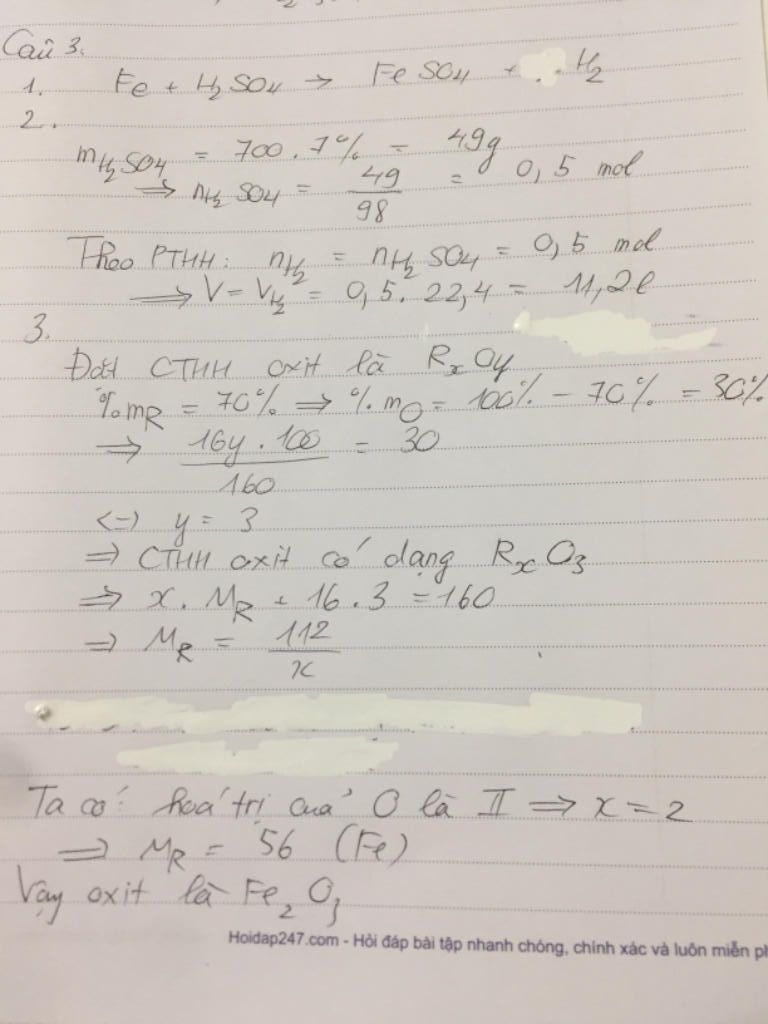 Câu 3.
1. Fe + H2SO4 → FeSO4 + H2
2.
mH2SO4 = 700 . 7% = 49g
⇒ nH2SO4 = 49/98 = 0,5 mol
Theo PTHH: nH2 = nH2SO4 = 0,5 mol
⇒ V = VH2 = 0,5 . 22,4 = 11,2l
3.
Đặt CTHH oxit là RxOy
%mR = 70% ⇒ %mO = 100% - 70% = 30%
⇒ 16y . 100/160 = 30
<=> y = 3
⇒ CTHH oxit có dạng RxO3
⇒ x . MR + 16 . 3 = 160
⇒ MR = 112/x
Ta có: hoá trị của O là II ⇒ x = 2
⇒ MR = 56 (Fe)
Vậy oxit là Fe2O3
Hoidap247.com - Hỏi đáp bài tập nhanh chóng, chính xác và luôn miễn ph